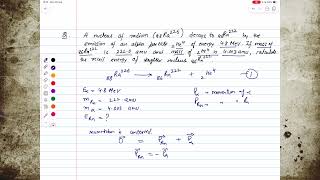 Q. A nucleus of radium (88Ra226) decays to 86Rn222 by the
emission of an alpha particle 2He4 of energy 4.8 MeV. If mass of
86Rn222 is 222.0 amu and mass of 2He4 is 4.003 amu, calculate
the recoil energy of daughter nucleus 86Rn222
88Ra226 → 86Rn222 + 2He4 — ①
Eα = 4.8 MeV
mα = 4.003 amu
ERn = ?
Pα = momentum of α
PRn = " " Rn
momentum is conserved.
0 = PRn + Pα
PRn = - Pα